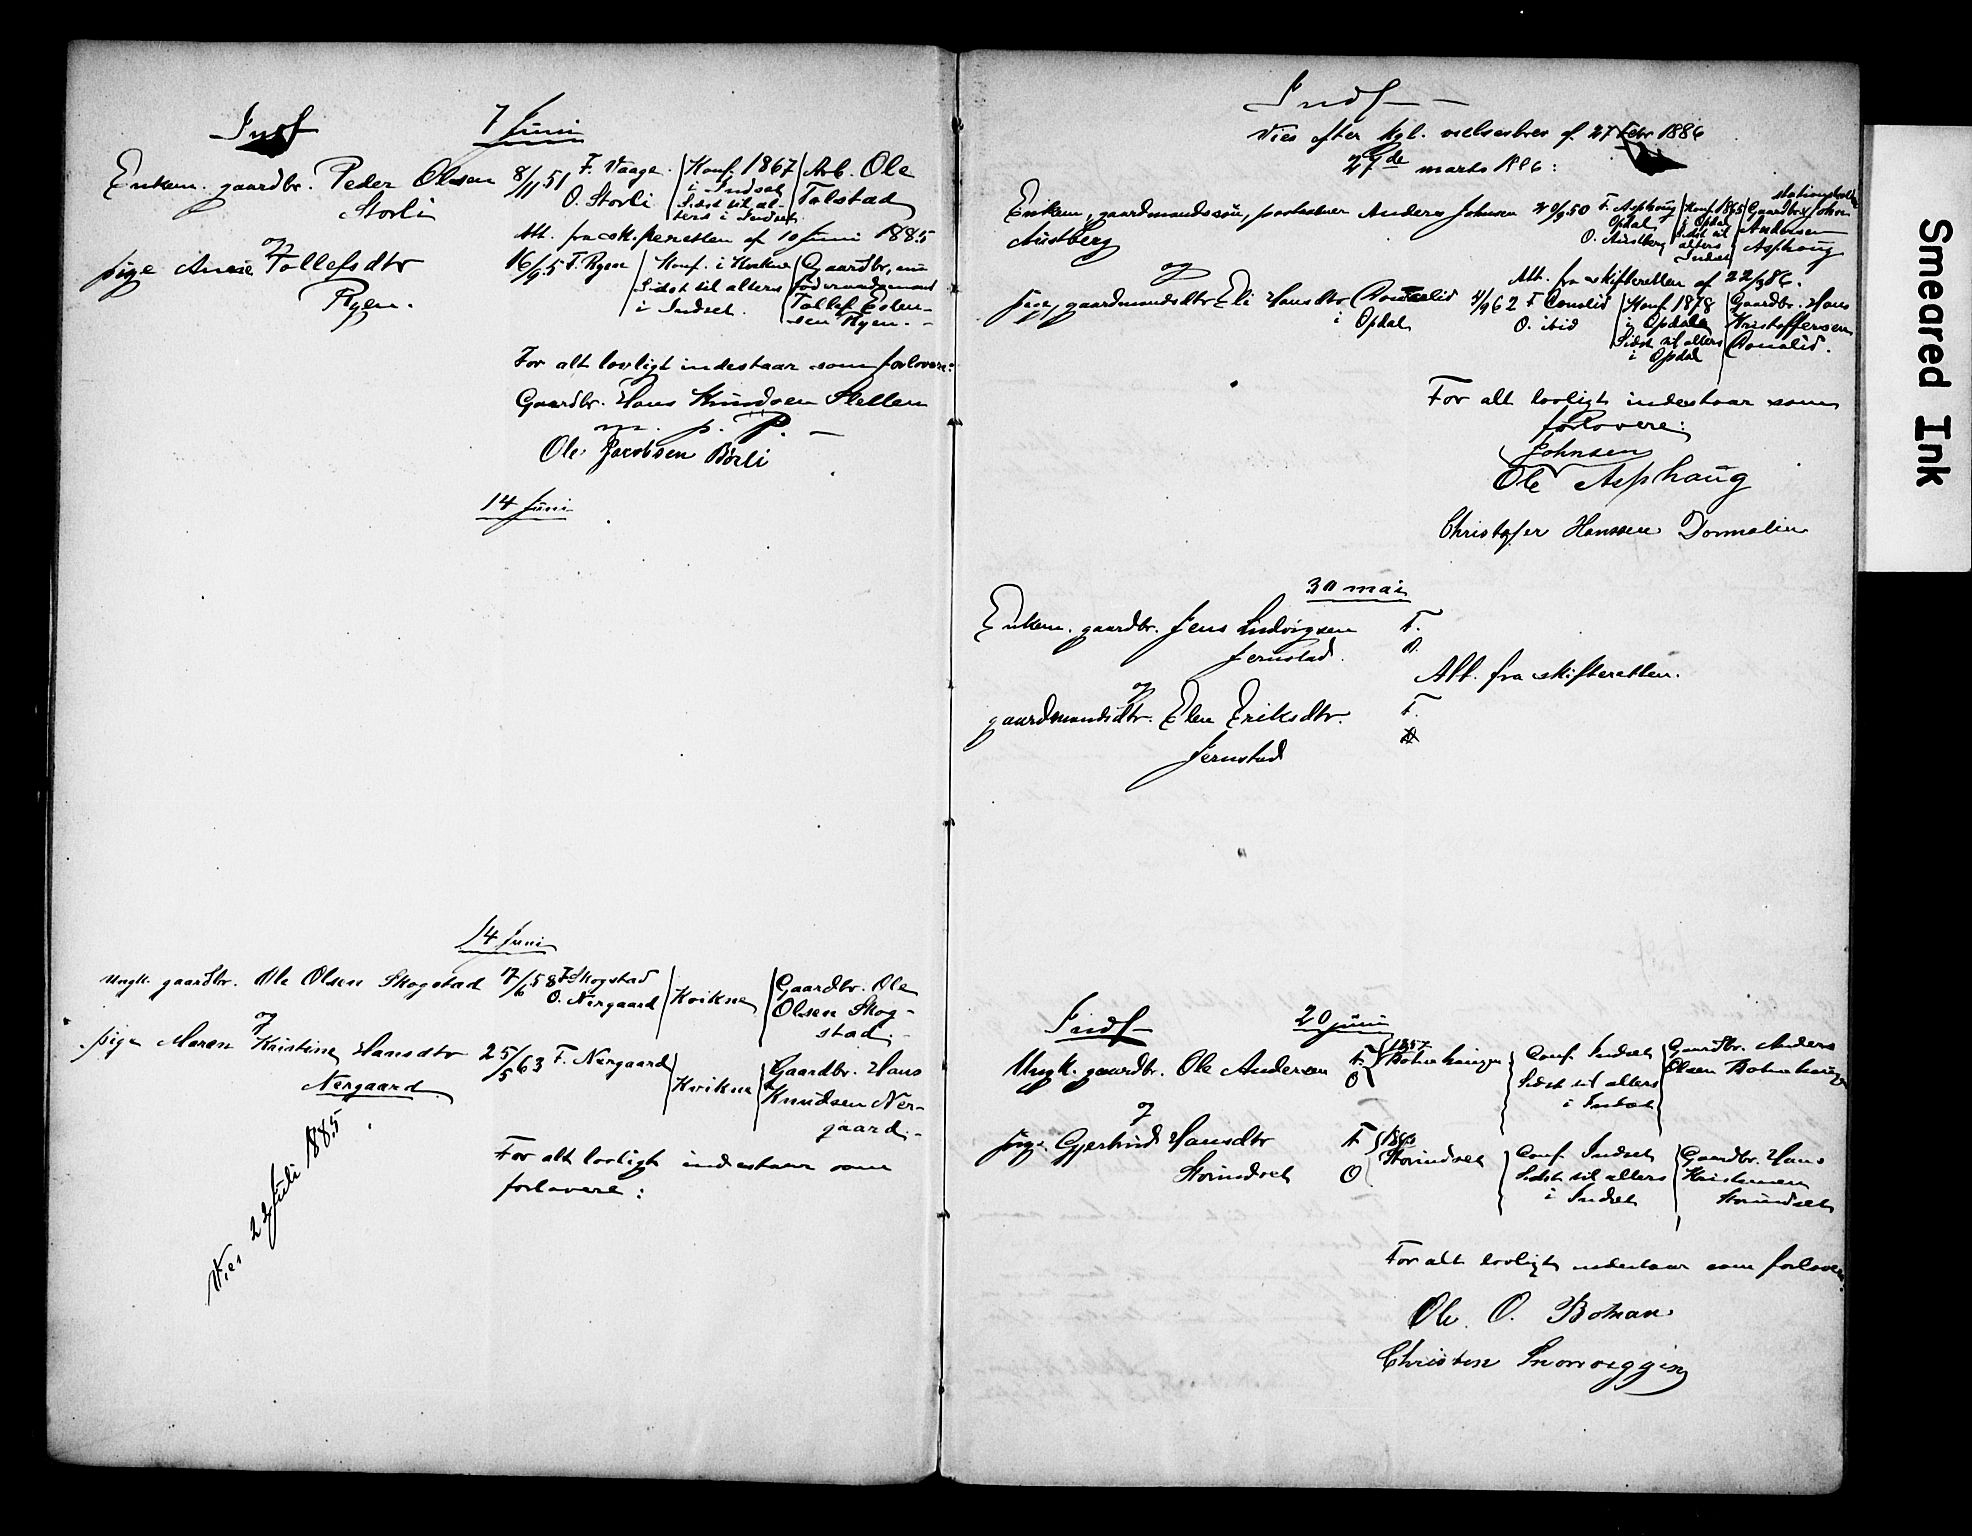 Indf
7 Juni
Enkem. gaardbr. Peder Olsen
Storli
8/11 51 F. Vaage
O. Storli
Konf. 1867
i Indset
Sidst til al-
ters i Indset
Arb. Ole
Talstad
Att. fra sk.feretten af 10 Juni 1885
og
pige Anne Tollefsdtr
Ryen.
16/9 5 F. Ryen
Konf. i Kvikne
Sidst til alters
i Indset.
Gaardbr., nu
föderaadsmand
Tollef Esten-
sen Ryen. -
For alt lovligt indestaar som forlovere:
Gaardbr. Hans Knudsen Sletten
m. p. P. -
Ole Jacobsen Børli
14 Juni
14 Juni
Ungk. gaardbr. Ole Olsen Skogstad
17/6 58 F. Skogstad
O. Nergaard
Kvikne
Gaardbr. Ole
Olsen Skog-
stad. -
og
pige Maren Kristine Hansdtr
Nergaard
25/5 63 F. Nergaard
Kvikne
Gaardbr. Hans
Knudsen Ner-
gaard. -
Vies 22 Juli 1885
For alt lovligt indestaar som
forlovere:
Indf -
Vies efter kgl. vielsesbrev af 27 Febr 1886
27de marts 1886:
Enkem, gaardmandssön, Anders Johnsen
Austberg
20/9 50 F. Asphoug
Opdal
O. Austberg
Konf. 1865
i Opdal
Sidst til
alters
Indset
stationsholder
Gaardbr John
Andersen
Asphoug
Att. fra skifteretten af 22/3 86.
og
pige, gaardmandsdtr Eli Hansdtr
i Opdal
4/9 62 F.
O. ibid
Konf. 1878
i Opdal
Sidst til alters
i Opdal
Gaardbr. Hans
Kristoffersen
For alt lovligt indestaar som
forlovere:
Johnsen
Ole Asphoug
Christofer Hanssen
30 mai
Enkem. gaardbr. Jens Ludvigsen
Jernstad.
F.
O.
Att. fra skifteretten.
og
gaardmandsdtr. Elen Eriksdtr.
Jernstad
F.
O
Indf
20 juni
Ungk. gaardbr. Ole Andersen
F.
O
1857
Conf. Indset
Sidst til alters
i Indset
Gaardbr. Anders
Olsen
og
pige Gjertrud Hansdtr
Storindset
F
O
1863
Storindset
Conf. Indset
Sidst til alters
i Indset
Gaardbr. Hans
Kristensen
Storindset
For alt lovligt indestaar som forlovere:
Ole O. Bohan
Christen Snoeveggen
Smeared Ink